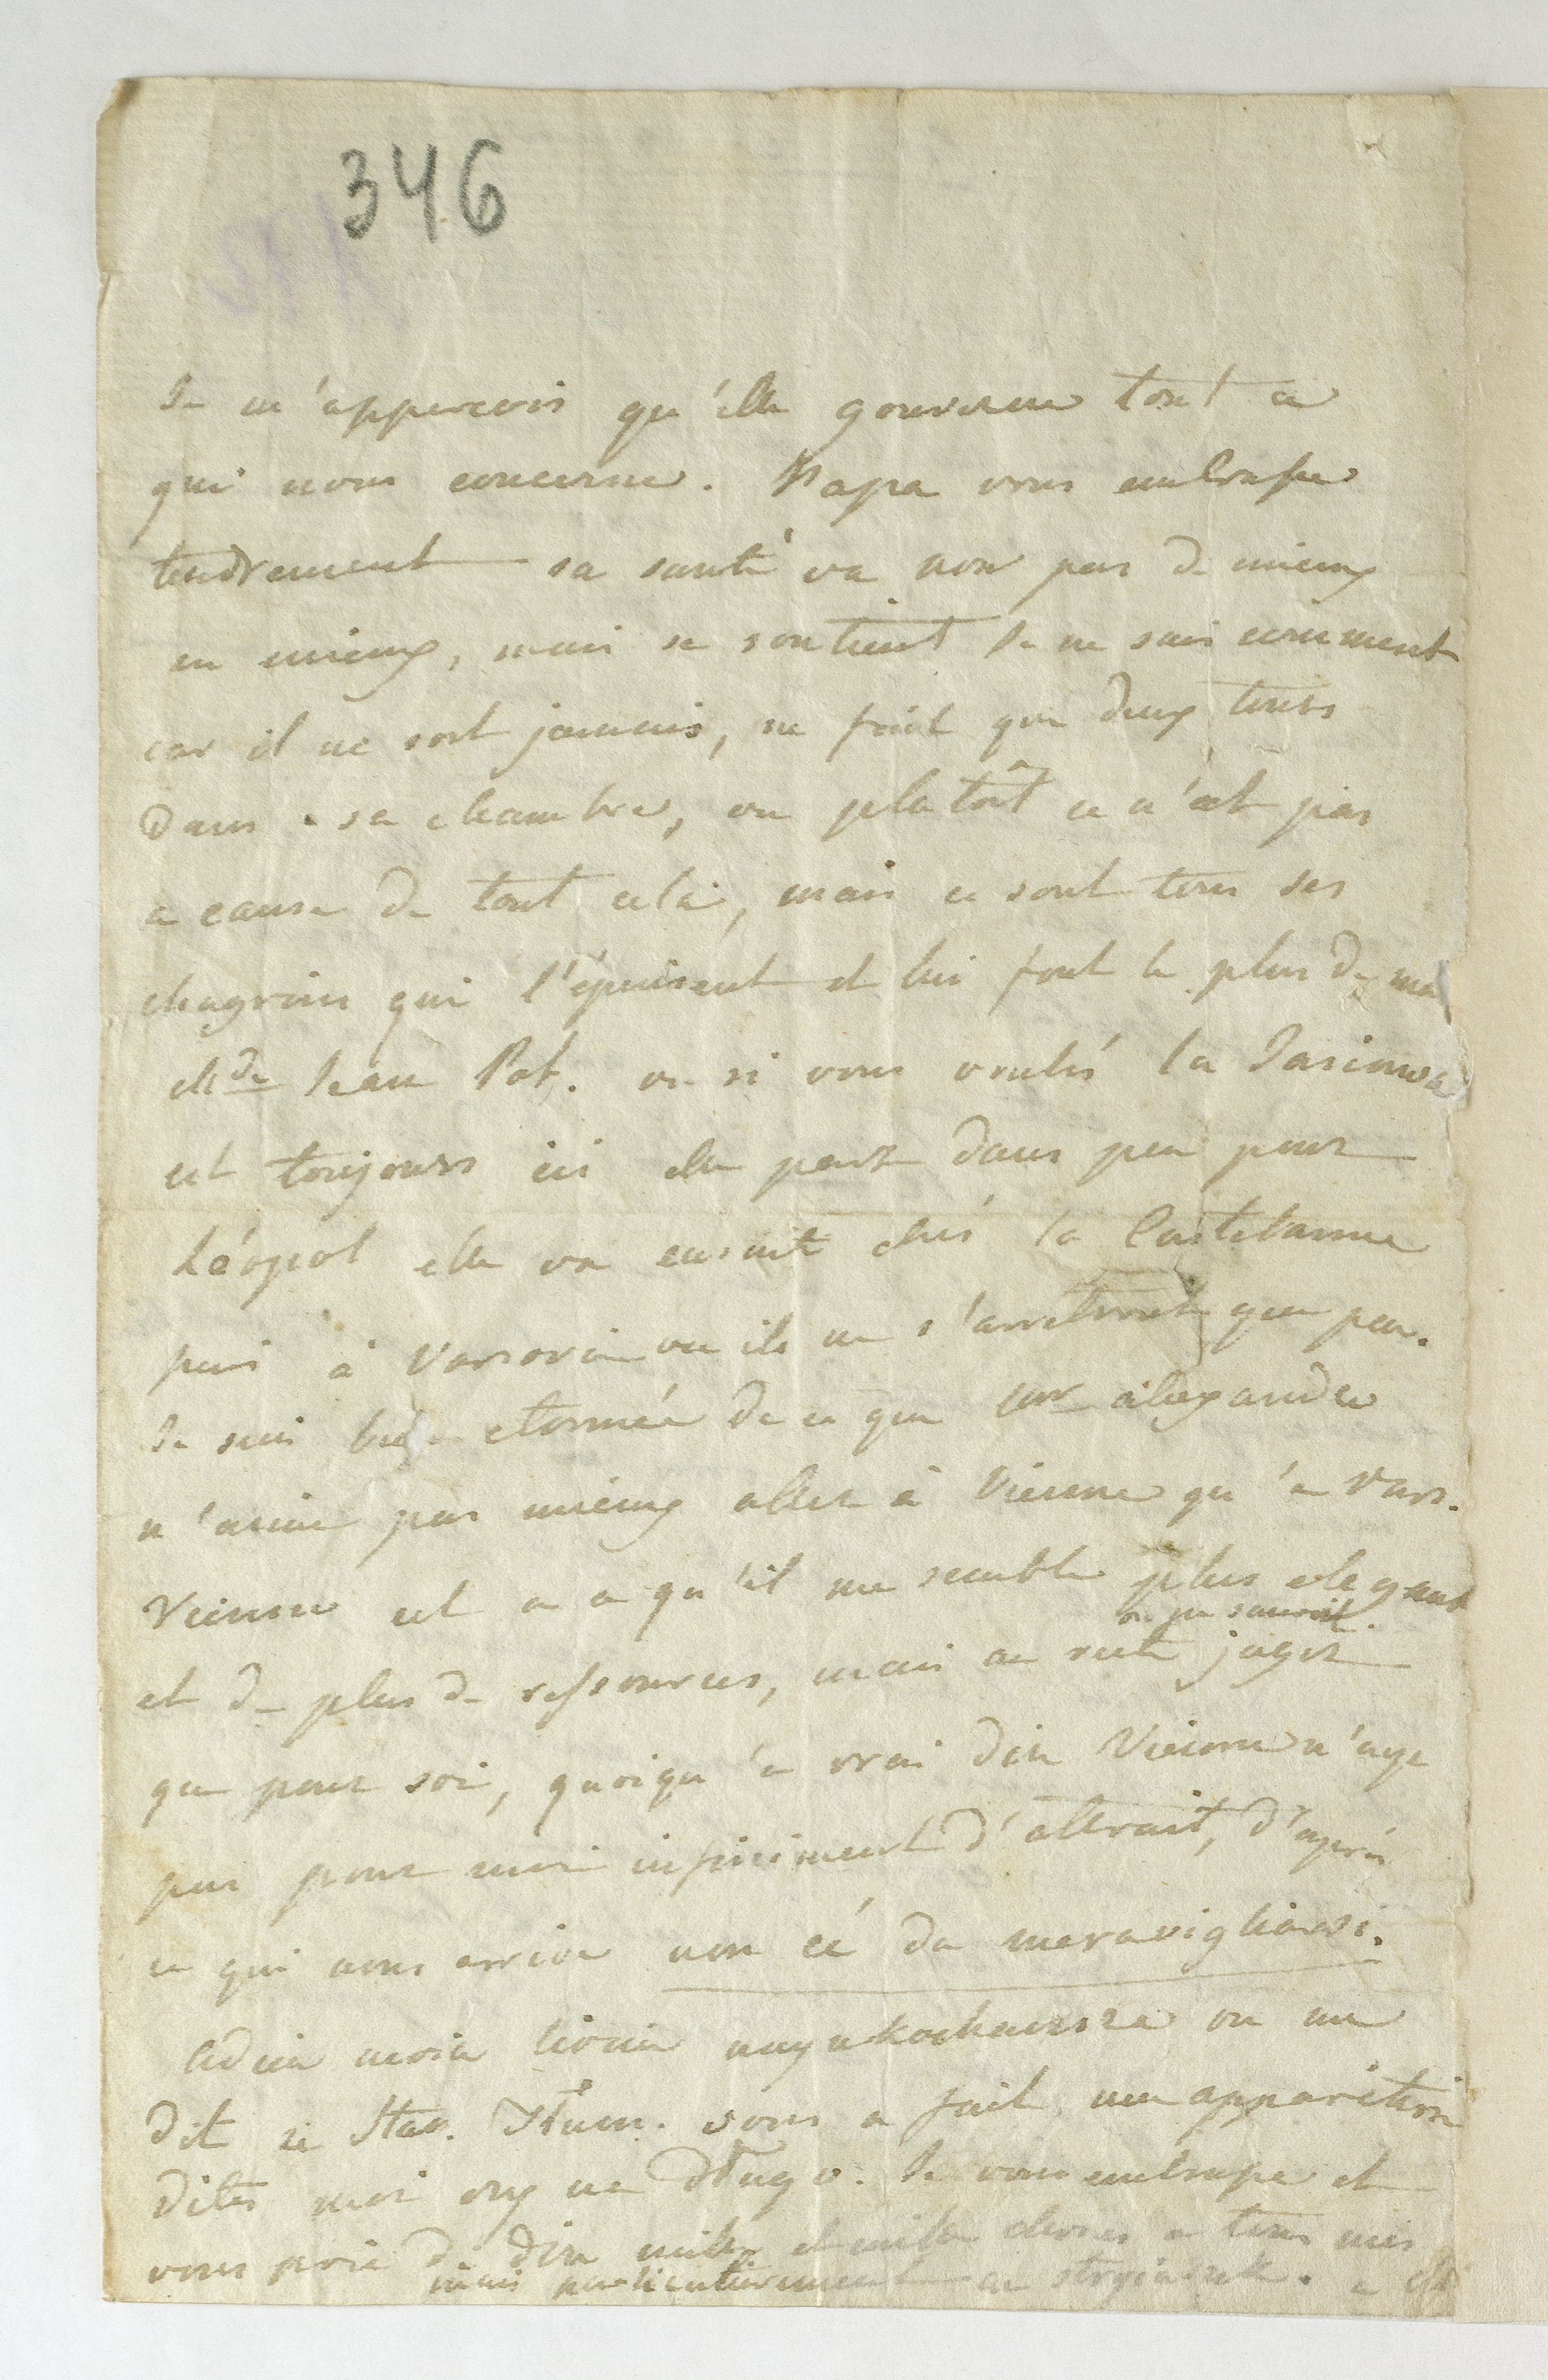 346
Je m'apperçois qu'elle gouverne tout ce
qui nous concerne. Papa vous embrasse
tendrement sa santé va non pas de mieux
en mieux, mais se soutient je ne sais comment
car il ne sort jamais, ne fait que deux tours
dans sa chambre, ou plutôt ce n'est pas
a cause de tout cela, mais ce sont tous ses
chagrins qui l'épuisent et lui font le plus de mal
Mde Jean Pot. ou si vous voulés la Jasiowa
est toujours ici elle part dans peu pour
Léopol elle va ensuite chés la Castelanne
puis à Varsovie ou ils ne s'arretront que peu.
Je suis bien etonnée de ce que mr alexandre
n'aime pas mieux aller à Vienne qu'a Vars.
Vienne est a ce qu'il me semble plus elegant
et de plus de ressources, mais au reste on ne sauroit juger
que pour soi, quoiqu'a vrai dire Vienne n'aye
pas pour moi infiniment d'attrait, d'après
ce qui nous arrive non cé da meravigliarsi.
adieu moia livia nayukochansza on me
dit si Stan. vous a fait une apparition
dites moi czy na długo. Je vous embrasse et
vous prie de dire mille et mille choses a tous mes
mais particulièrement au stryiaszek. a